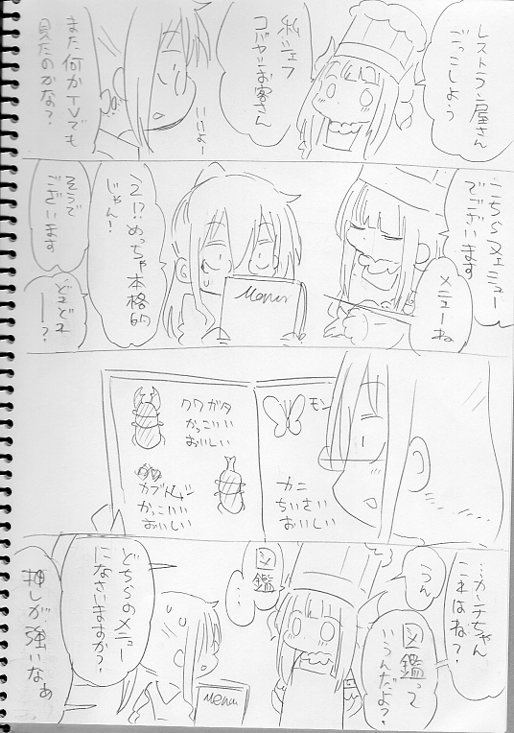 レストラン屋さん
ごっこしよう
私シェフ
コバヤシお客さん
いいよー
また何かTVでも
見たのかな?
こちらメニュー
でございます
メニューね
え!?めっちゃ本格的
じゃん!
そうで
ございます
どれどれ
ー?
Menu
クワガタ
かっこいい
おいしい
カブトムシ
かっこいい
おいしい
モン
カニ
ちいさい
おいしい
…カンナちゃん
これはね?
うん
図鑑って
いうんだよ?
図鑑
…
どちらのメニュー
になさいますか?
押しが強いなぁ
Menu